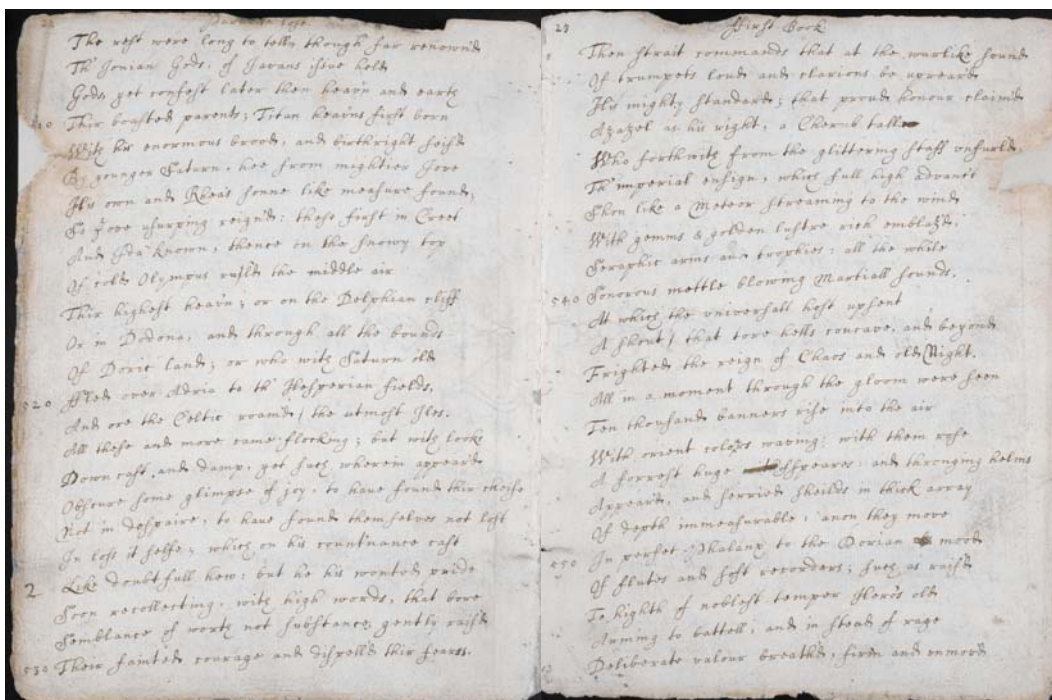 22
Paradise lost.
The rest were long to tell, though far renown'd
Th' Jonian Gods, of Javans issue held
Gods, yet confest later then heav'n and earth
510 Thir boasted parents; Titan heav'ns first born
With his enormous brood, and birthright seis'd
By younger Saturn, hee from mightier Jove
His own and Rhea's sonne like measure found;
So Jove usurping reign'd: these first in Creet
And Ida known, thence on the snowy top
Of cold Olympus rul'd the middle air
Thir highest heav'n; or on the Delphian cliff
Or in Dodona, and through all the bounds
Of Doric land; or who with Saturn old
520 ffled over Adria to th' Hesperian fields,
And ore the Celtic roam'd the utmost Iles.
All these and more came flocking; but with looks
Down cast, and damp, yet such wherein appear'd
Obscure some glimpse of joy, to have found thir cheife
Not in despaire, to have found themselves not lost
In loss it selfe; which on his count'nance cast
2 Like doubtfull hew: but he his wonted pride
Soon recollecting, with high words, that bore
Semblance of worth not substance, gently rais'd
530 Their fainted courage and dispell'd thir fears.
23
ffirst Book
Then strait commands that at the warlike sound
Of trumpets loud and clarions be upreard
His mighty standard; that proud honour claim'd
Azazel as his right, a Cherub tall
Who forthwith from the glittering staff unfurld,
Th' imperial ensign, which full high advanc't
Shon like a Meteor streaming to the wind
With gemms & golden lustre rich emblaz'd,
Seraphic arms and trophies: all the while
540 Sonorous mettle blowing Martiall sounds.
At which the universall host upsent
A shout, that tore hells concave, and beyond
Frighted the reign of Chaos and old Night.
All in a moment through the gloom were seen
Ten thousand banners rise into the air
With orient colors waving: with them rose
A forrest huge of speares: and thronging helms
Appear'd, and serried sheilds in thick array
Of depth immeasurable, anon they move
550 In perfet Phalanx to the Dorian mood
Of flutes and soft recorders; such as rais'd
To highth of noblest temper Hero's old
Arming to battell; and in stead of rage
Deliberate valour breath'd, firm and unmov'd